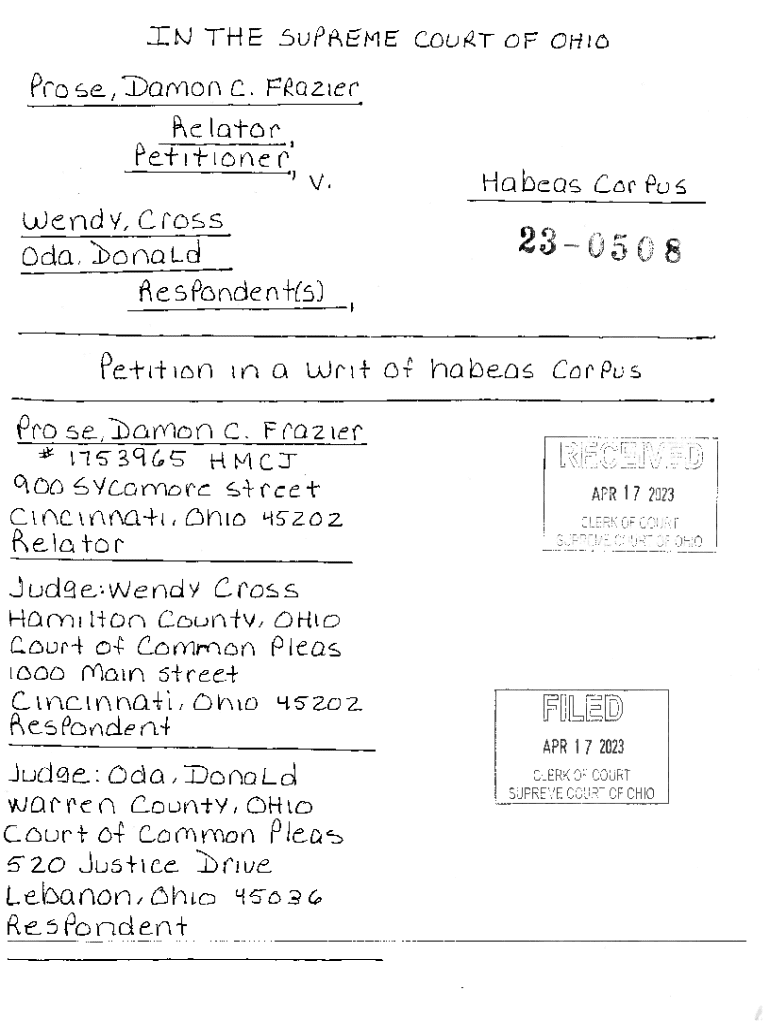 IN THE SUPREME COURT OF OHIO
Prose, Damon C. Frazier
Relator,
Petitioner,
v.
Habeas Corpus
Wendy, Cross
23-0508
Oda, Donald
Respondent(s),
Petition in a Writ of habeas Corpus
Pro se, Damon C. Frazier
# 1753965 HMCJ
900 Sycamore street
Cincinnati, Ohio 45202
Relator
RECEIVED
APR 17 2023
CLERK OF COURT
SUPREME COURT OF OHIO
Judge: Wendy Cross
Hamilton County, OHIO
Court of Common Pleas
1000 Main street
Cincinnati, Ohio 45202
Respondent
FILED
APR 17 2023
CLERK OF COURT
SUPREME COURT OF OHIO
Judge: Oda, Donald
Warren County, OHIO
Court of Common Pleas
520 Justice Drive
Lebanon, Ohio 45036
Respondent